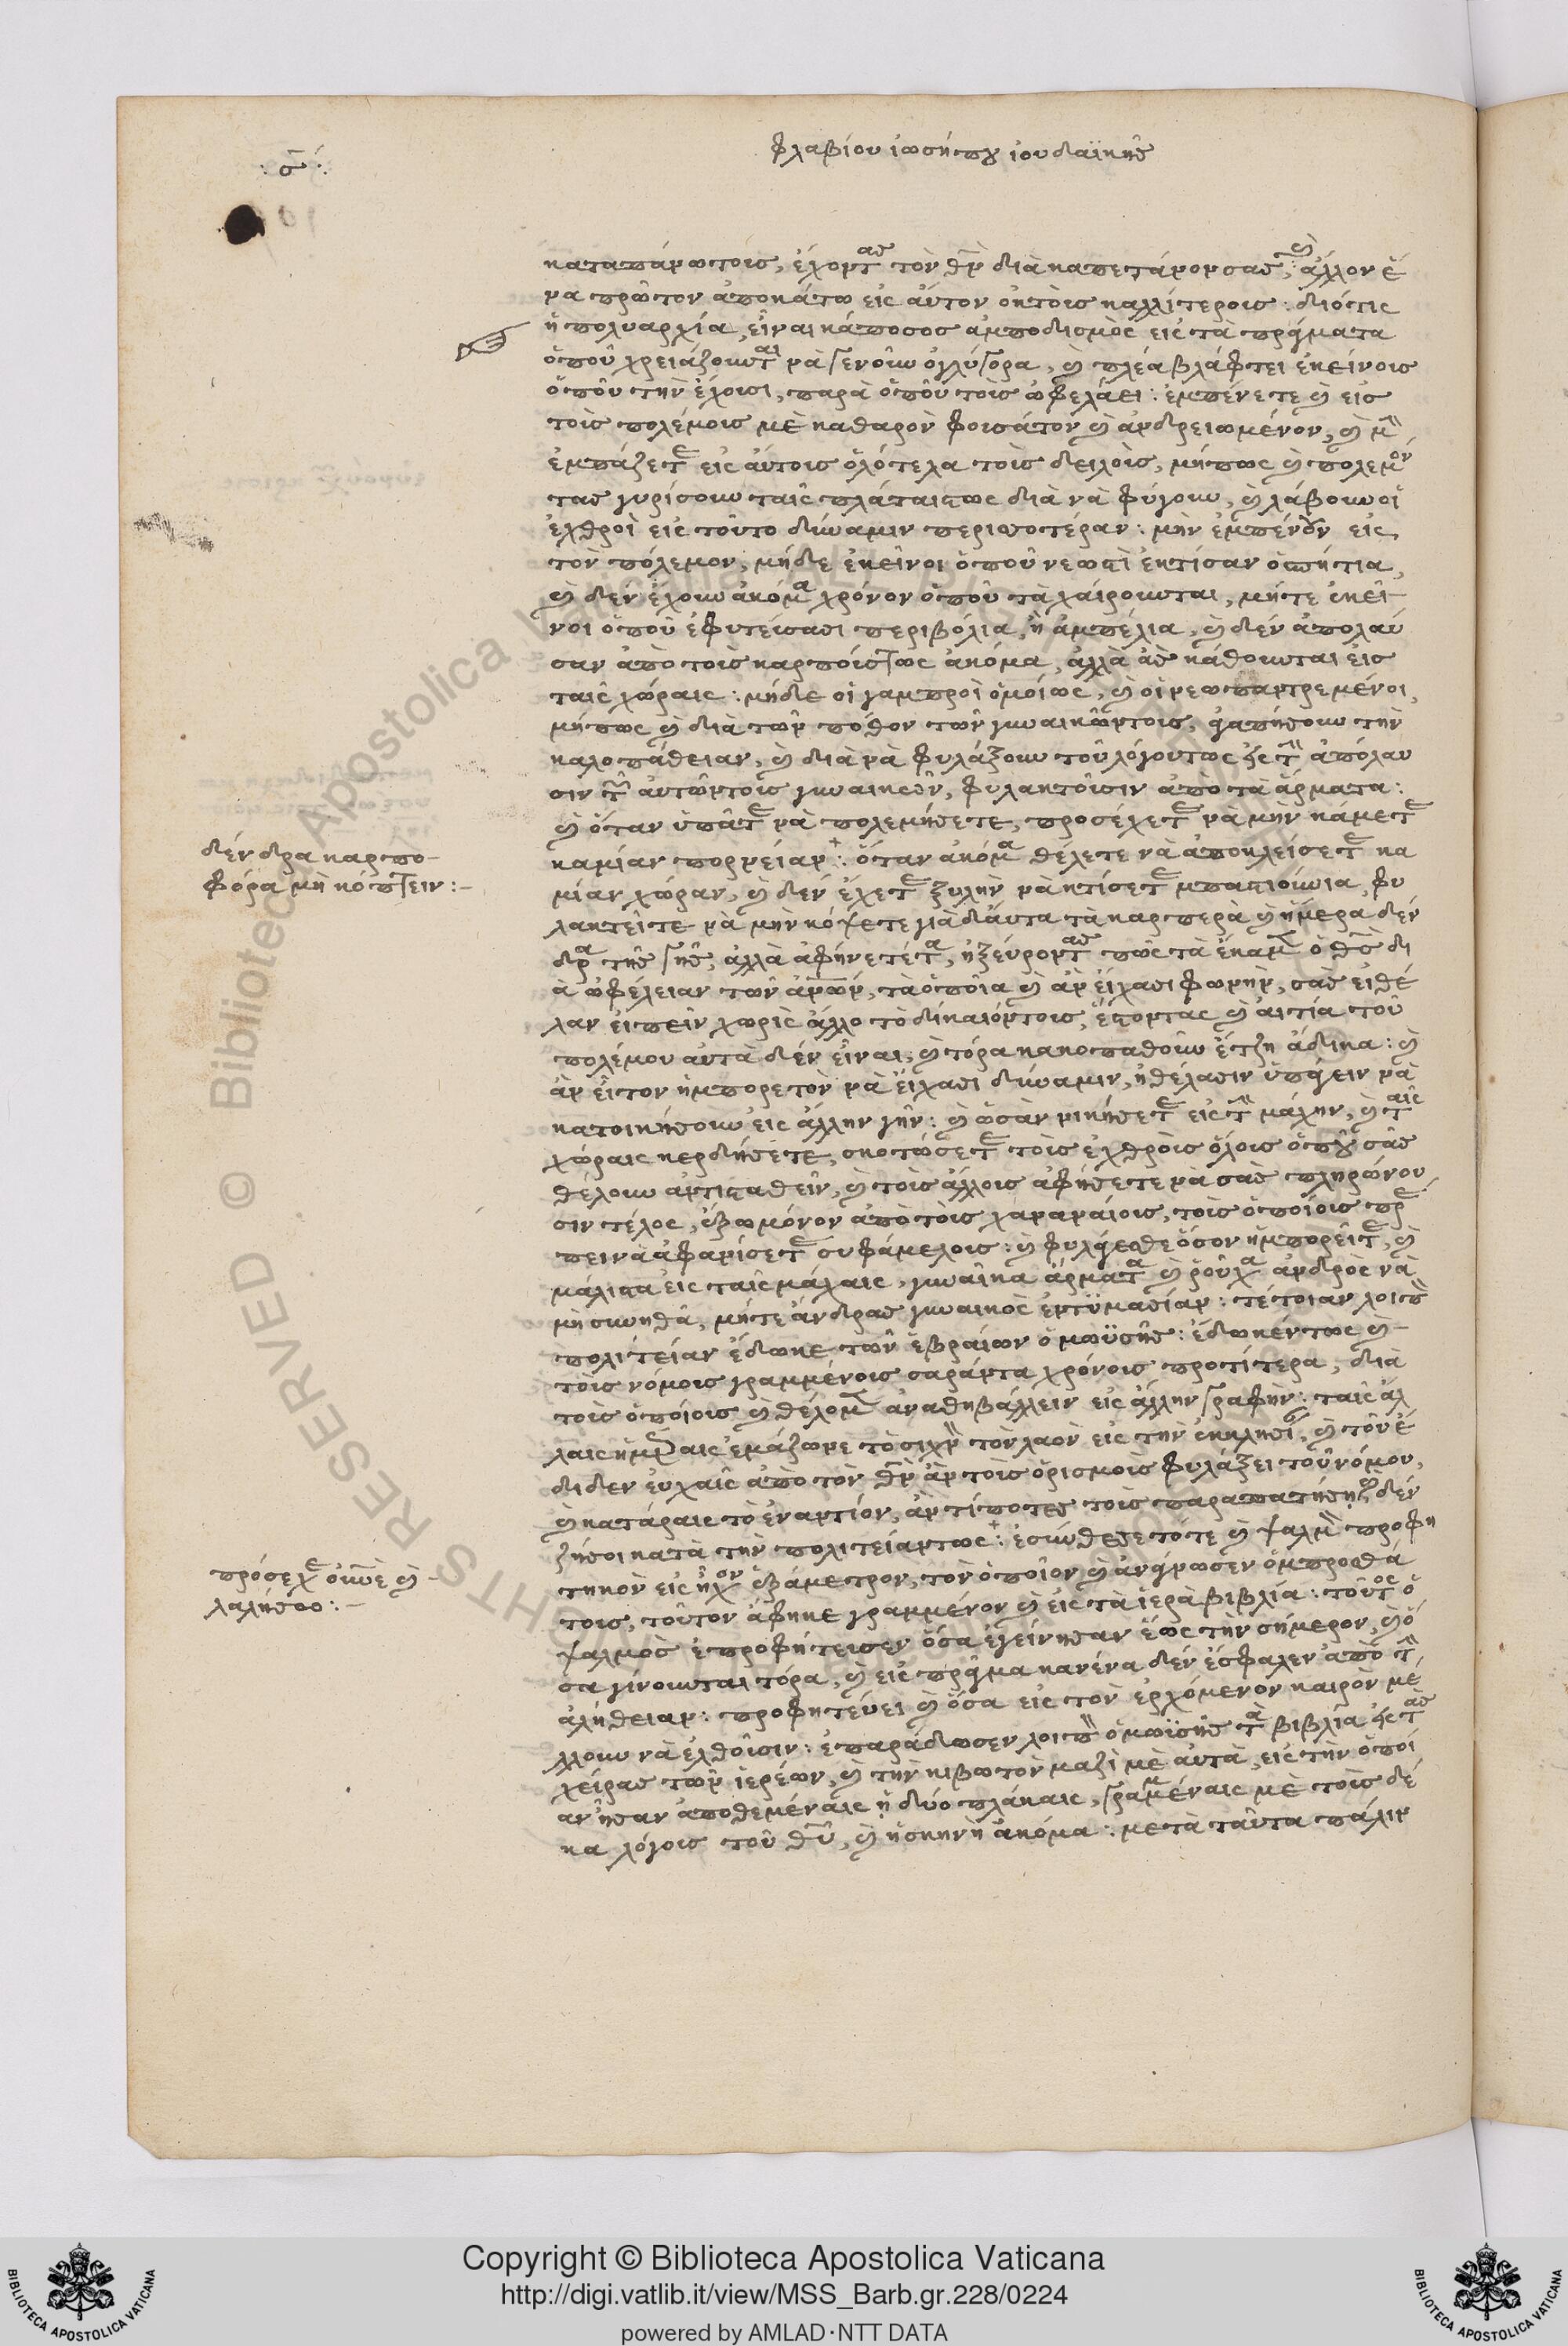 φλαβίου ἰωσήπου ἰουδαϊκῆς
σ
καταπάνωτοις, ἔχοντας τὸν θν διὰ καπετάνονσας, καὶ ἄλλον ἕ
να πρῶτον ἀποκάτω εἰς αὐτον ἐκτοις καλλίτεροις: διότις
ἡ πολυαρχία, εἶναι κάποσος ἀμποδισμὸς εἰς τὰ πράγματα
ὁποῦ χρειάζουνται νὰ γενοῦν ὀγλύγορα, καὶ πλέα βλάφτει ἐκείνοις
ὁποῦ τὴν ἔχουσι, παρὰ ὁποῦ τοὶς ὠφελάει: ἐμπένετε καὶ εἰς
τοὶς πολέμοις μὲ καθαρὸν φουσάτον καὶ ἀνδρειωμένον, καὶ μὴν
ἐμπάζετε εἰς αὐτοις ὁλότελα τοὶς δειλοὶς, μήπως καὶ πολεμόν
τας γυρίσουν ταῖς πλάταιςτως διὰ νὰ φύγουν, καὶ λάβουν οἱ
ἐχθροὶ εἰς τοῦτο δύναμιν περισσοτέραν: μὴν ἐμπένουν εἰς
τὸν πόλεμον, μήδε ἐκεῖνοι ὁποῦ νεωστὶ ἐκτίσαν ὁσπήτια,
καὶ δὲν ἔχουν ἀκόμα χρόνον ὁποῦ τὰ χαίρουνται, μήτε ἐκεῖ
νοι ὁποῦ ἐφυτεύσασι περιβόλια, ἢ ἀμπέλια, καὶ δὲν ἀπολαύ
σαν ἀπὸ τοὶς καρποίστως ἀκόμα, ἀλλὰ ἂς κάθουνται εἰς
ταῖς χώραις: μήδε οἱ γαμπροὶ ὁμοίως, καὶ οἱ νεωπαντρεμένοι,
μήπως καὶ διὰ τὸν πόθον τῶν γυναικῶντοις, ἀγαπήσουν τὴν
καλοπάθειαν, καὶ διὰ νὰ φυλάξουν τοῦ λόγουντως εἰς τὴν ἀπόλαυ
σιν τῶν αὐτῶντοις γυναικῶν, φυλακτοῦσιν ἀπὸ τὰ ἄρματα:
καὶ ὅταν ὑπᾶτε νὰ πολεμήσετε, προσέχετε νὰ μὴν κάμετε
καμίαν πορνείαν: ὅταν ἀκόμα θέλετε νὰ ἀποκλείσετε κα
μίαν χώραν, καὶ δὲν ἔχετε ξυλὴν νὰ κτίσετε μπαστιούνια, φυ
λακτεῖτε νὰ μὴν κόψετε γιὰ δαῦτα τὰ καρπερὰ καὶ ἥμερα δέν
δρα τῆς γῆς, ἀλλὰ ἀφήνετέτα, ἠξεύροντας πῶς τὰ ἔκαμεν ὁ θς δι
ὰ ὠφέλειαν τῶν ἀνων, τὰ ὁποῖα καὶ ἂν εἴχασι φωνὴν, σὰς εἰθέ
λαν εἰπεῖν χωρὶς ἄλλο τὸ δικαιόντοις, ἔστοντας καὶ αἰτία τοῦ
πολέμου αὐτὰ δὲν εἶναι, καὶ τόρα κακοπαθοῦν ἔτζη ἄδικα: καὶ
ἂν εἶτον ἠμπορετὸν νὰ εἴχασι δύναμιν, ἠθέλασιν ὑπάγειν νὰ
κατοικήσουν εἰς ἄλλην γῆν: καὶ ὡσὰν νικήσετε εἰς τὴν μάχην, καὶ ταῖς
χώραις κερδήσετε, σκοτώσετε τοὶς ἐχθροὶς ὅλοις ὁποῦ σᾶς
θέλουν ἀντισταθεῖν, καὶ τοὶς ἄλλοις ἀφήσετε νὰ σᾶς πληρώνου
σιν τέλος, ἔξω μόνον ἀπὸ τοὶς χαναναίοις, τοὶς ὁποίοις πρέ
πει νὰ ἀφανίσετε συφάμελοις: καὶ φυλάγεσθε ὅσον ἠμπορεῖτε, καὶ
μάλιστα εἰς ταῖς μάχαις, γυναῖκα ἄρματα καὶ ῥοῦχα ἀνδρὸς νὰ
μὴ συνηθᾶ, μήτε ἄνδρας γυναικὸς ἐντϋμασίαν: τέτοιαν λοιπὸν
πολιτείαν ἔδωκε τῶν ἑβραίων ὁ μωϋσῆς: ἐδωκέντως καὶ
τοὶς νόμοις γραμμένοις σαράντα χρόνοις προτίτερα, διὰ
τοὶς ὁποίοις καὶ θέλομεν ἀναθηβάλλειν εἰς ἄλλην γραφὴν: ταῖς ἄλ
λαις ἡμέραις ἐμάζωνε τὸ συχνὸν τὸν λαὸν εἰς τὴν ἐκκλησίαν, καὶ τοῦ ἔ
διδεν εὐχαῖς ἀπὸ τὸν θν ἂν τοὶς ὁρισμοὶς φυλάξει τοῦ νόμου,
καὶ κατάραις τὸ ἐναντίον, ἂν τίποτες τοὶς παραπατήσῃ, καὶ δὲν
ζήσοι κατὰ τὴν πολιτείαντως: ἐσύνθεσε τότε καὶ ψαλμὸν προφη
τηκὸν εἰς ἦχον ἑξάμετρον, τὸν ὁποῖον καὶ ἀνάγνωσεν ὀμπροσθά
τοις, τοῦτον ἄφηκε γραμμένον καὶ εἰς τὰ ἱερὰ βιβλία: τοῦτος ὁ
ψαλμὸς ἐπροφήτεισεν ὅσα ἐγείνησαν ἕως τὴν σήμερον, καὶ ὅ
σα γίνουνται τόρα, καὶ εἰς πράγμα κανένα δὲν ἔσφαλεν ἀπὸ τὴν
ἀλήθειαν: προφητεύει καὶ ὅσα εἰς τὸν ἐρχόμενον καιρὸν μέ
λλουν νὰ ἐλθοῦσιν: ἐπαράδωσεν λοιπὸν ὁ μωϊσῆς τὰ βιβλία εἰς τὰς
χεῖρας τῶν ἱερέων, καὶ τὴν κιβωτὸν μαζὶ μὲ αὐτὰ, εἰς τὴν ὁποί
αν ἦσαν ἀποθεμέναις ἡ δύο πλάκαις, γραμμέναις μὲ τοὶς δέ
κα λόγοις τοῦ θῦ, καὶ ἡ σκηνὴ ἀκόμα: μετὰ ταῦτα πάλιν
δένδρα καρπο-
φόρα μὴ κόπτειν:-
πρόσεχε οὐνὲ καὶ
λαλήσω:-
Copyright © Biblioteca Apostolica Vaticana
http://digi.vatlib.it/view/MSS_Barb.gr.228/0224
powered by AMLAD·NTT DATA